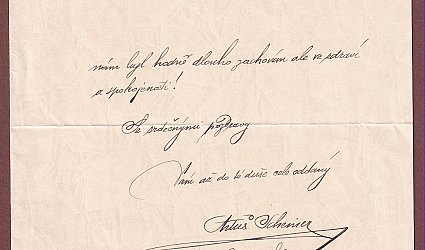 nám byl hodně dlouho zachován ale ve zdraví
a spokojenosti!
Se srdečnými pozdravy
Vám až do té duše cele oddaný
Artuš Scheiner